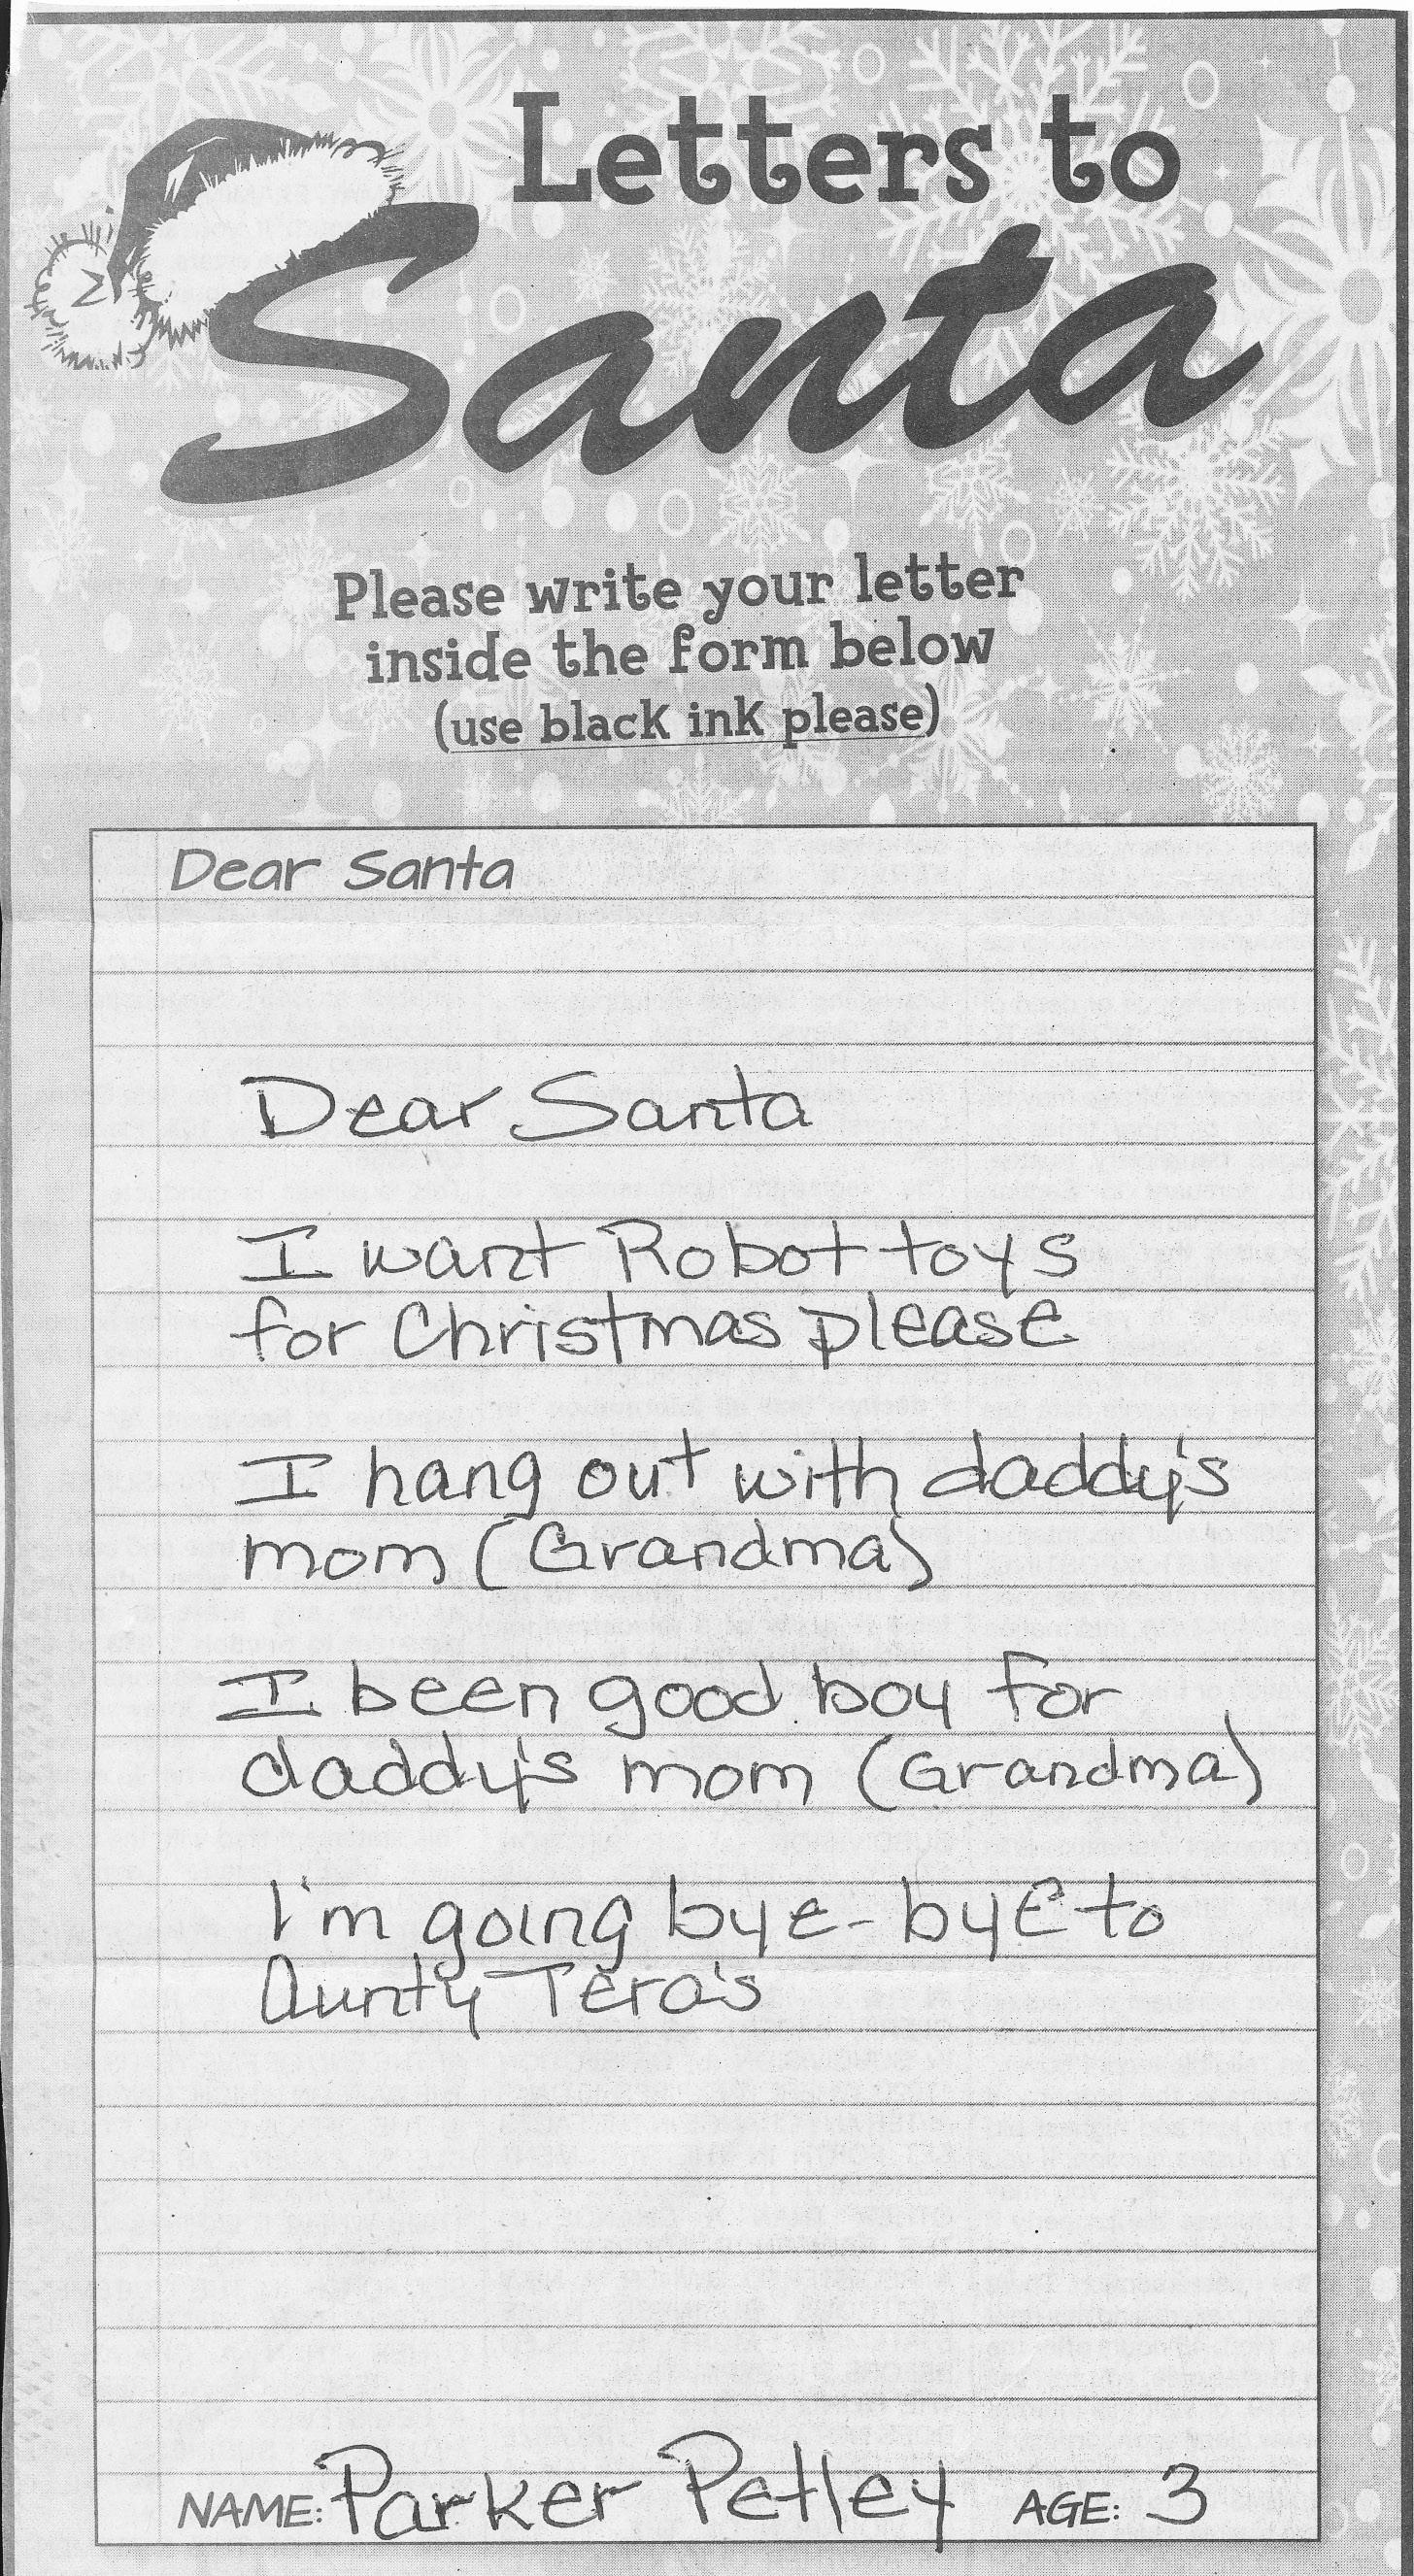 Letters to
Santa
Please write your letter
inside the form below
(use black ink please)
Dear Santa
Dear Santa
I want Robot toys
for Christmas please
I hang out with daddy's
mom (Grandma)
I been good boy for
daddy's mom (Grandma)
I'm going bye-bye to
Aunty Tera's
NAME: Parker Petley AGE: 3